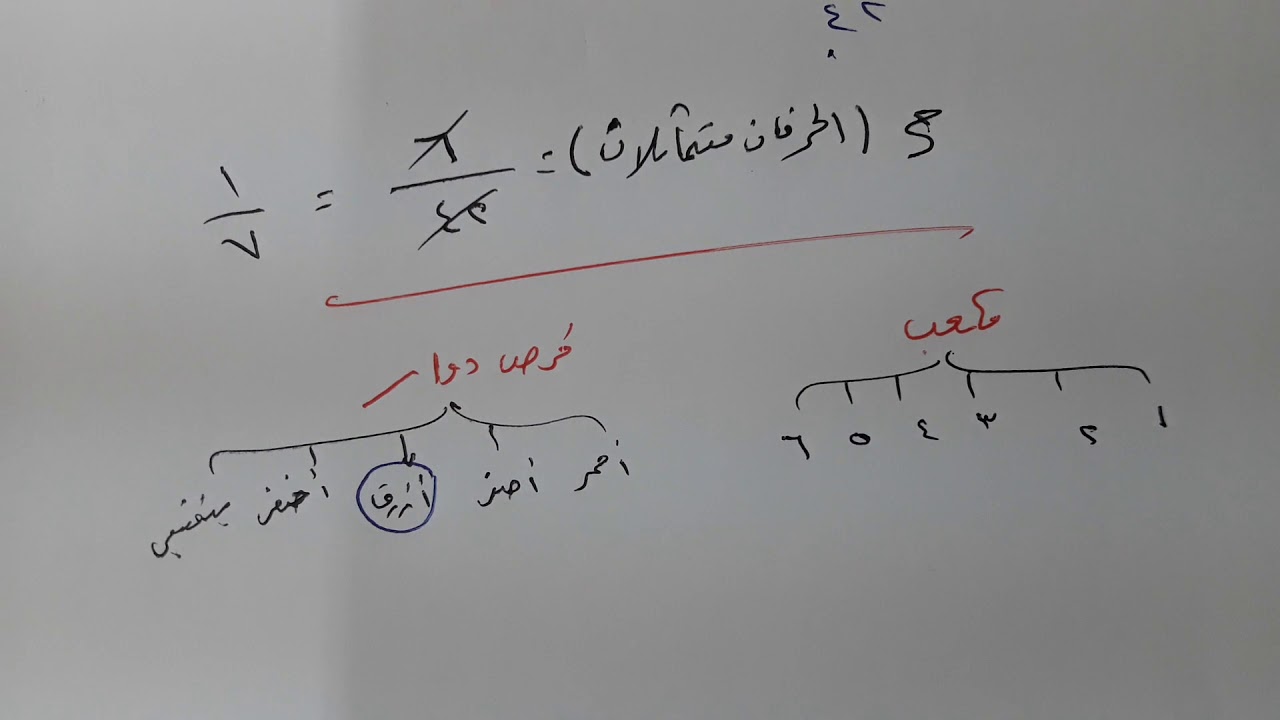 ٤٢
ح (الحرفان متماثلان) = ٦/٤٢ = ١/٧
مكعب
١ ٢ ٣ ٤ ٥ ٦
قرص دوار
أحمر أصفر أزرق أخضر بنفسجي